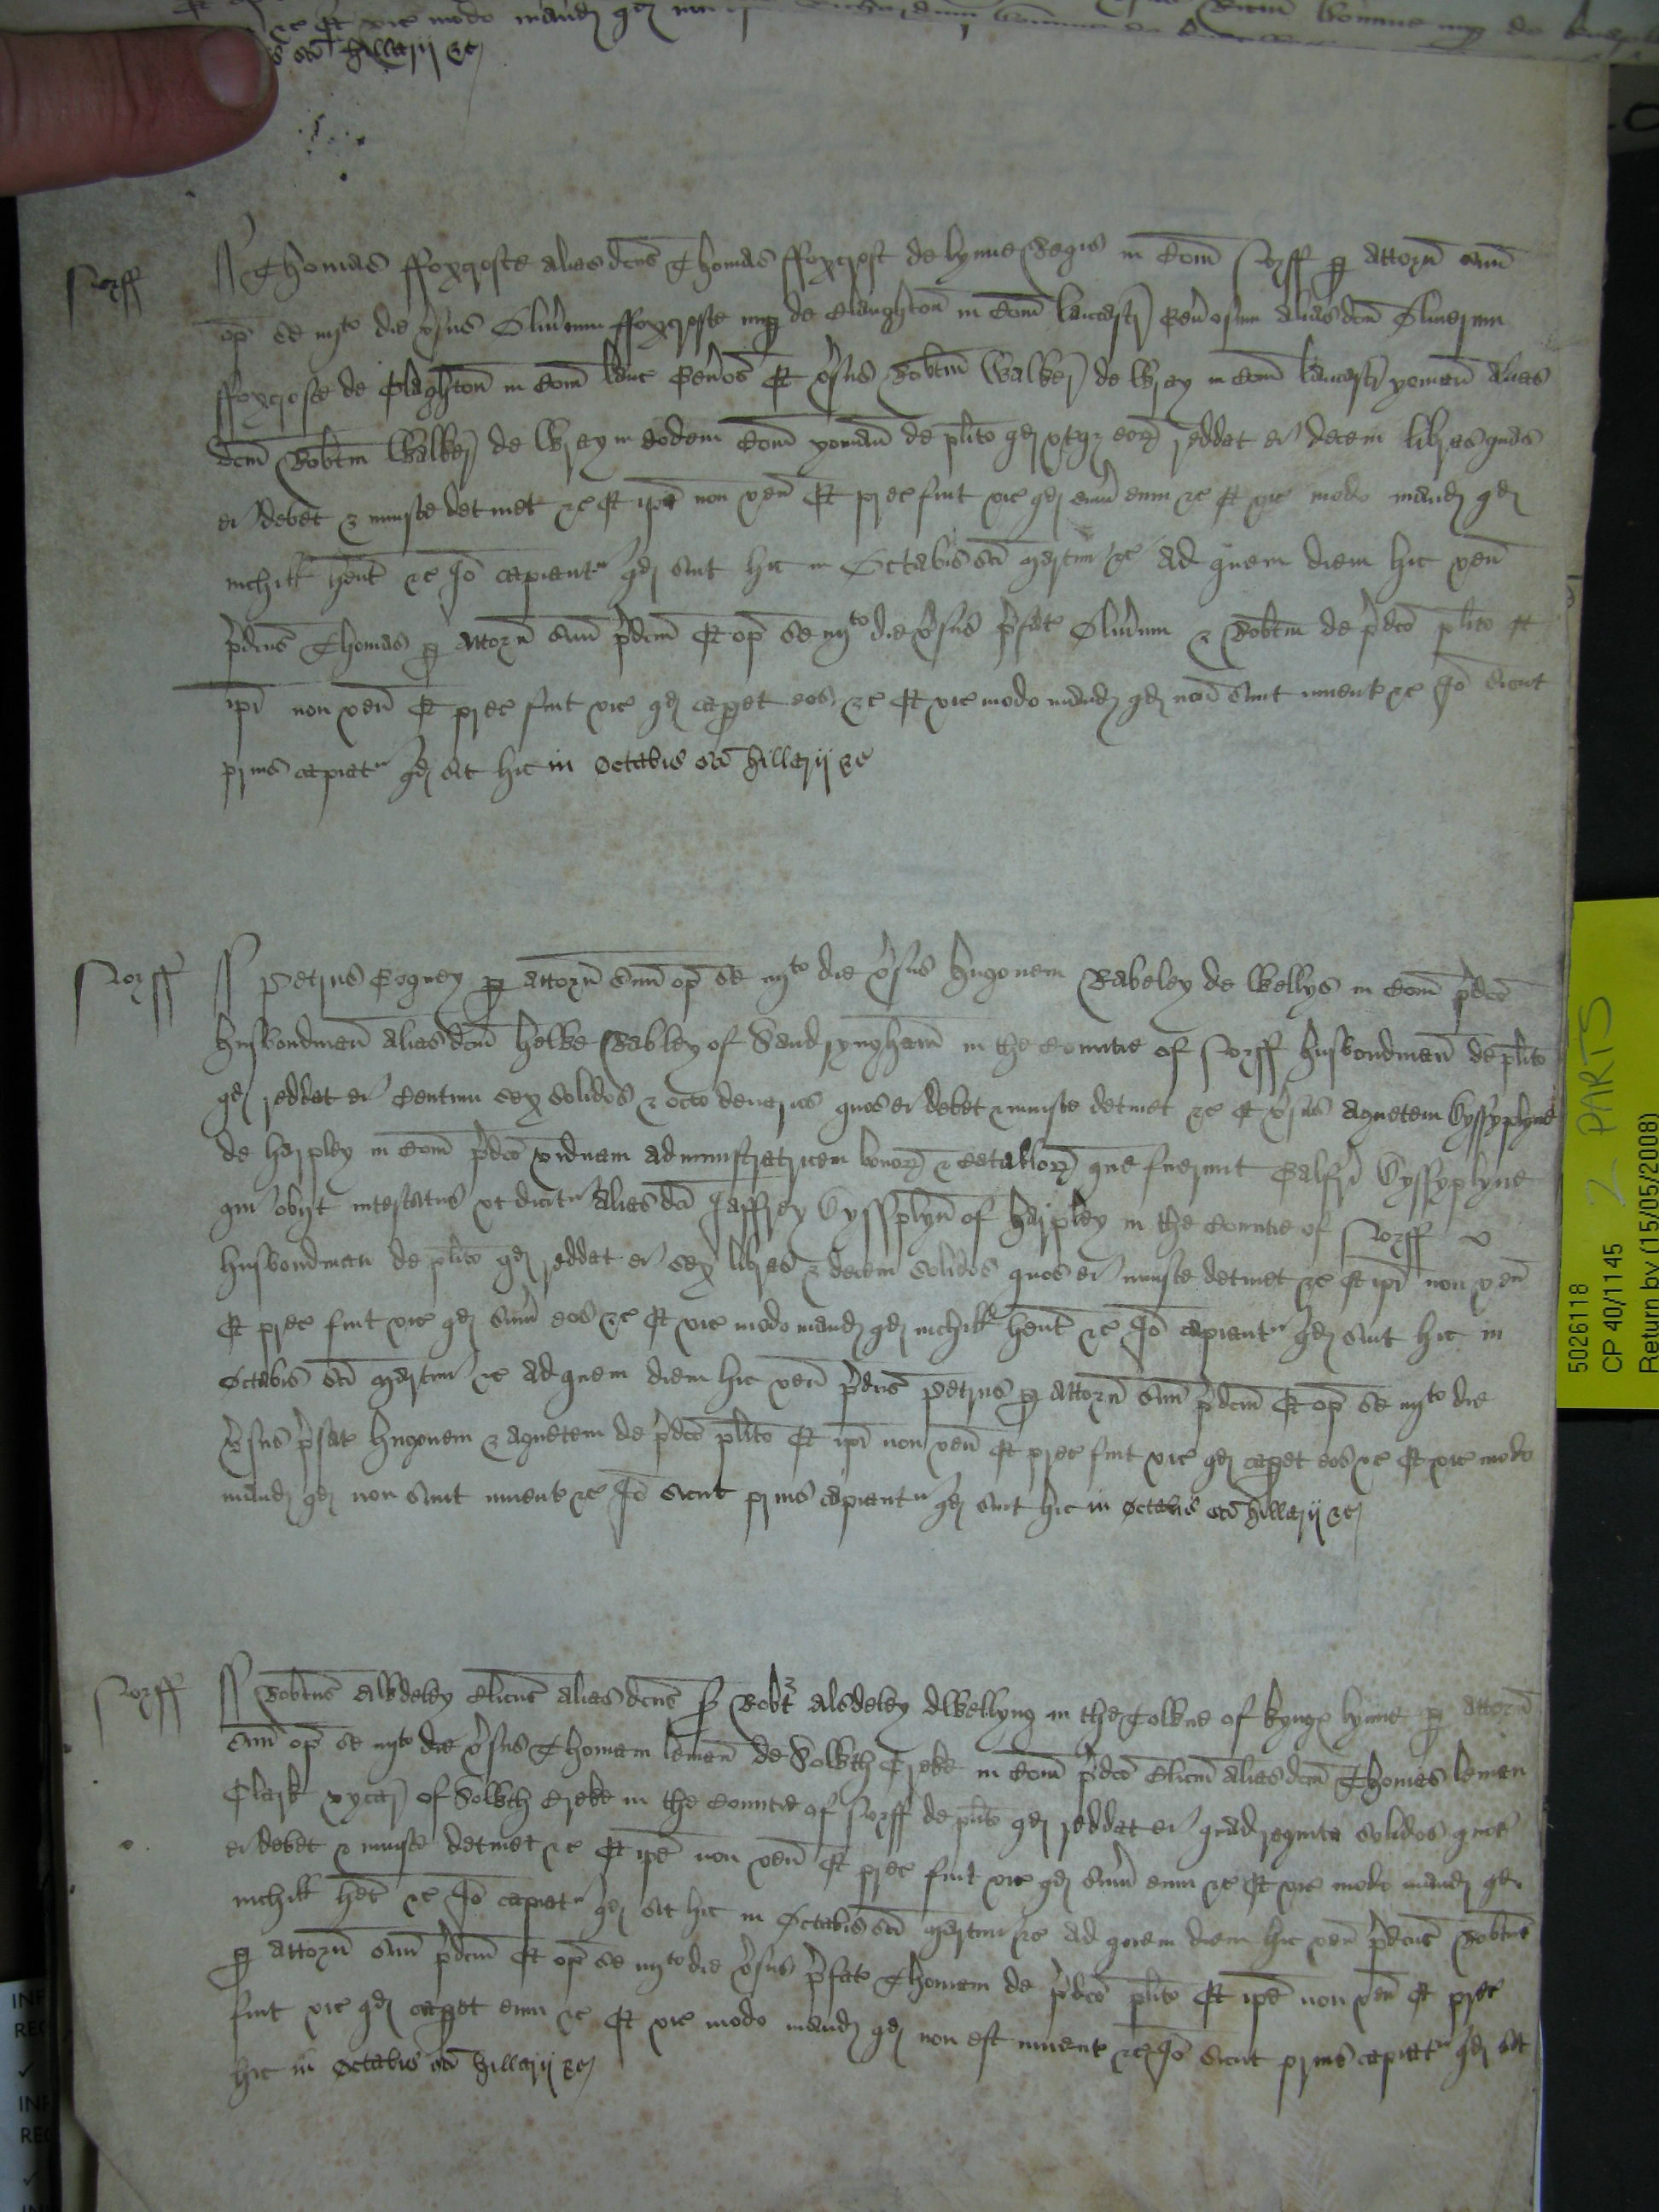 sci hillarij &c
Norff Thomas ffoxcrofte alias dcus Thomas ffoxcroft de lynne Regis in Com Norff p attorn suu
op se iiijto die vsus Oliuum ffoxcrofte nup de Claughton in Com lancastr Gen osum alias dcm Oliuerum
ffoxcrofte de Claghton in Com lanc Genos Et vsus Robtm Walker de Wray in Com lancastr yoman alias
dcm Robtm Walker de Wray in eodem Com yoman de plito qd vtqz eoz reddat ei decem libras quas
ei debet & iniuste detinet &c Et ipi non ven Et prec fuit vic qd sum eum &c Et vic modo mand qd
nichil hent &c Io capiantr qd sint hic in Octabis sci Martini &c Ad quem diem hic ven
pdcus Thomas p attorn suu pdcm Et op se iiijto die vsus pfat Oliuum & Robtm de pdco plito Et
ipi non ven Et prec fuit vic qd capet eos &c Et vic modo mand qd non sunt inuent &c Io sicut
prius capiatr qd sit hic in Octabis sci hillarij &c
Norff Petrus Cogney p attorn suu op se iiijto die vsus hugonem Rabeley de Wellys in Com pdco
husbondman alias dcm hewe Rabley of Sandryngham in the Countie of Norff husbondman de plito
qd reddat ei Centum sex solidos & octo denarios quos ei debet & iniuste detinet &c Et vsus Agnetem
de harpley in Com pdco viduam administratricem bonoz & Catalloz que fuerunt Galfri
qui obijt intestatus vt dicitr alias dci Jaffrey of harpley in the Countie of Norff
husbondman de plito qd reddat ei sex libras & decem solidos quos ei iniuste detinet &c Et ipi non ven
Et prec fuit vic qd sum eos &c Et vic modo mand qd nichil hent &c Io capiantr qd sint hic in
Octabis sci Martini &c Ad quem diem hic ven pdcus Petrus p attorn suu pdcm Et op se iiijto die
vsus pfat hugonem & Agnetem de pdco plito Et ipi non ven Et prec fuit vic qd capet eos &c Et vic modo
mand qd non sunt inuent &c Io sicut prius capiantr qd sint hic in Octabis sci hillarij &c
Norff Robtus clicus alias dcus Robt dwellyng in the Towne of kyngs lynne p attorn
suu op se iiijto die vsus Thomam leman de Sowth Creke in Com pdco clicm alias dcm Thomas leman
Clark vycar of Sowth Creke in the Countie of Norff de plito qd reddat ei quadraginta solidos quos
ei debet & iniuste detinet &c Et ipe non ven Et prec fuit vic qd sum eum &c Et vic modo mand qd
nichil het &c Io capiatr qd sit hic in Octabis sci Martini &c Ad quem diem hic ven pdcus Robtus
p attorn suu pdcm Et op se iiijto die vsus pfat Thomam de pdco plito Et ipe non ven Et prec
fuit vic qd capet eum &c Et vic modo mand qd non est inuent &c Io sicut prius capiatr qd sit
hic in Octabis sci hillarij &c
2 PARTS
5026118
CP 40/1145
Return by (15/05/2008)